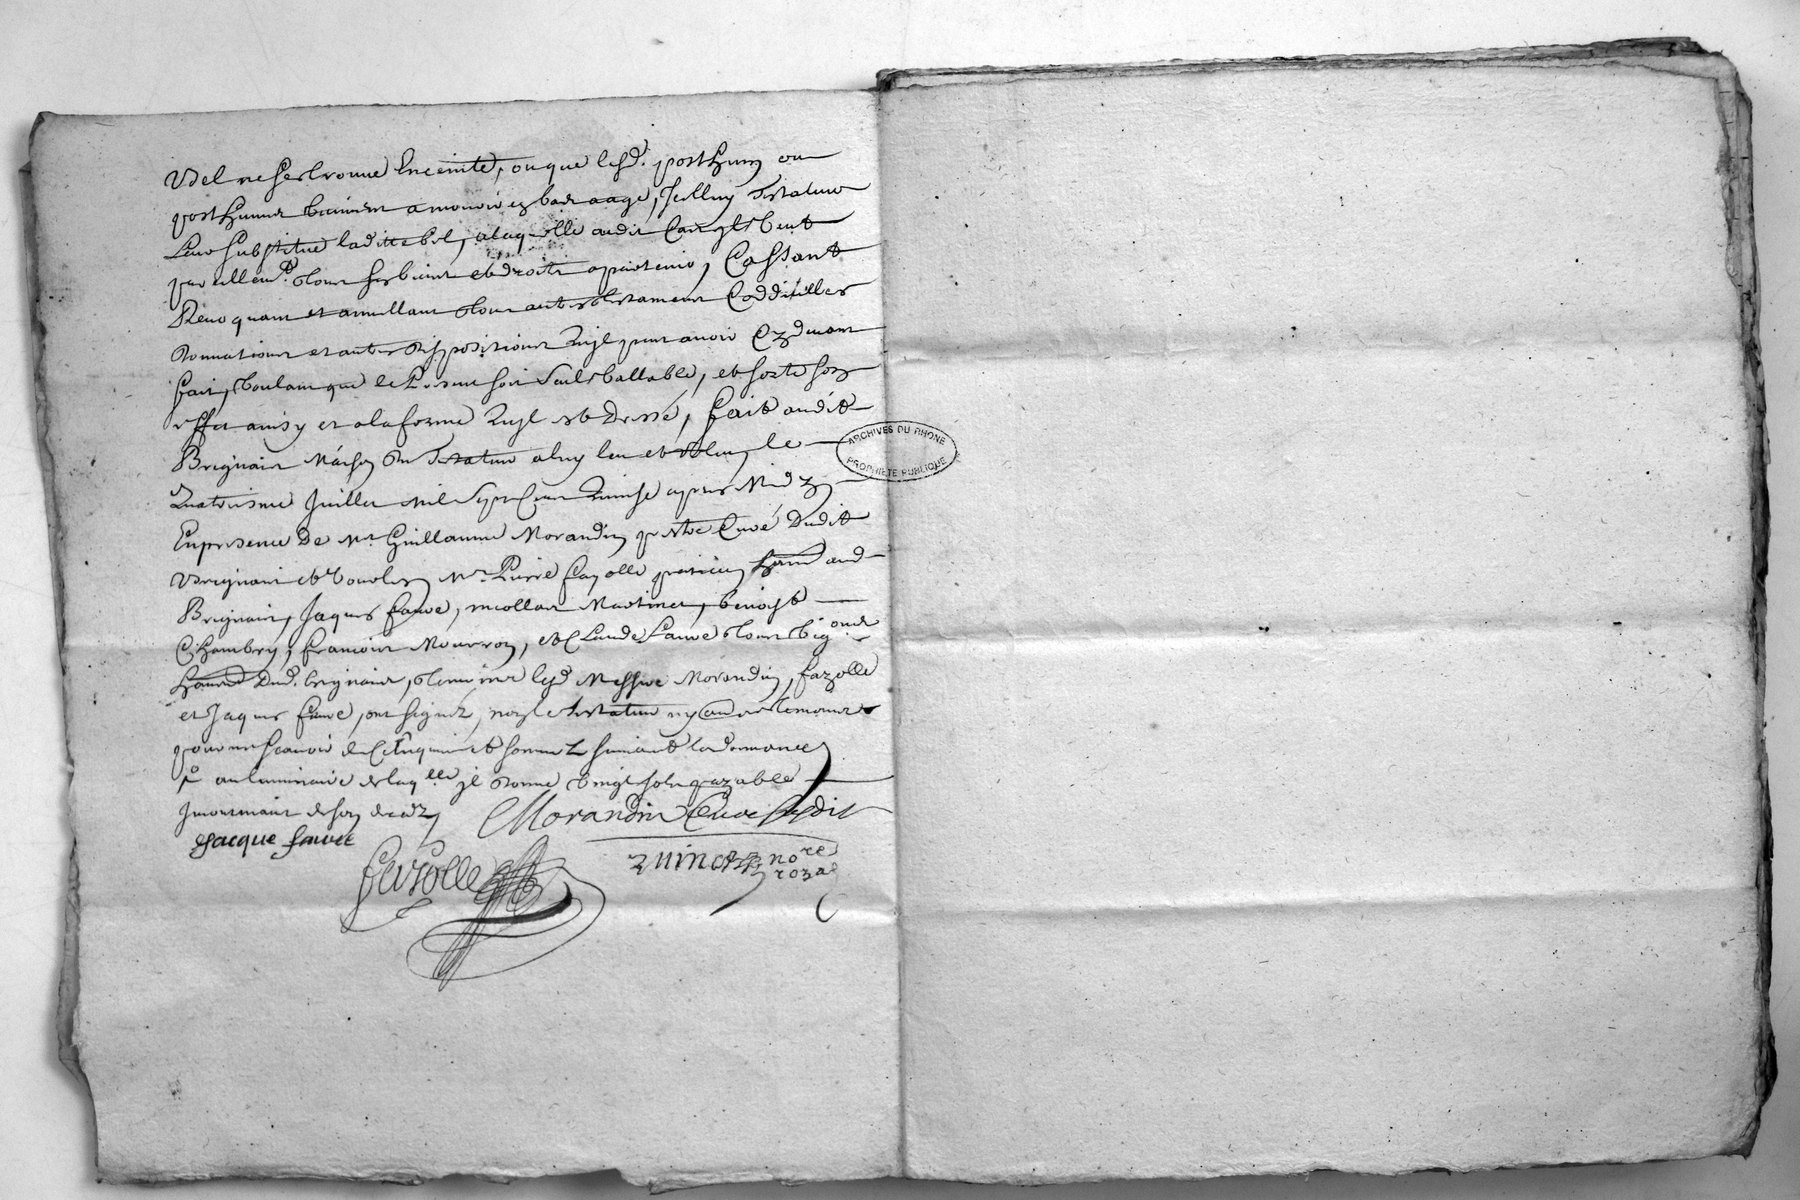 Vel ne se trouve enceinte, ou que lesd. posthume ou
posthumes vinient a mourir en bas aage, Icelluy testateur
leur substitue laditte Vel, a laquelle audit cas
pareillemt. tous ses biens et droits apartenir, Cassant
Revoquant et annullant tous autres testament Coddicilles
donnations et autres dispositions quyl peut avoir cy devant
fait, voulant que le presant soit seul vallable, et sorte son
effet ainsy et a la forme quyl est dressé, fait audit
Brignais maison du testateur a luy leu et releu, le
quatriesme Juillet mil sept cent quinse apres midy
En presence de Mr. Guillaume Morandin prestre Curé dudit
Brignais et Mr. Pierre Fayolle praticien aud.
Brignais, Jaques Fauve, nicollas Martinet, benoyst
Chambry, francois Mourron, et Claude Fauve tous vignerons
dud. brignais, temoins lesd. Messire Morandin, fayolle
et Jaques fauve, ont signéz, non le testateur ny autres temoins
pour ne scavoir de ce enquis et somméz suivant l'ordonnance
au luminaire de laqlle. il donne vingt sols payable
Incontinant de son deces
Morandin Curé susdit
Jacque fauve
Fayolle
nore
royal
ARCHIVES DU RHONE
PROPRIÉTÉ PUBLIQUE